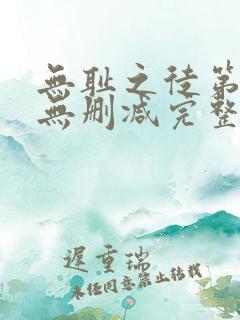 無耻之徒第
無删减完整
遲重瑞
未经同意禁止转载